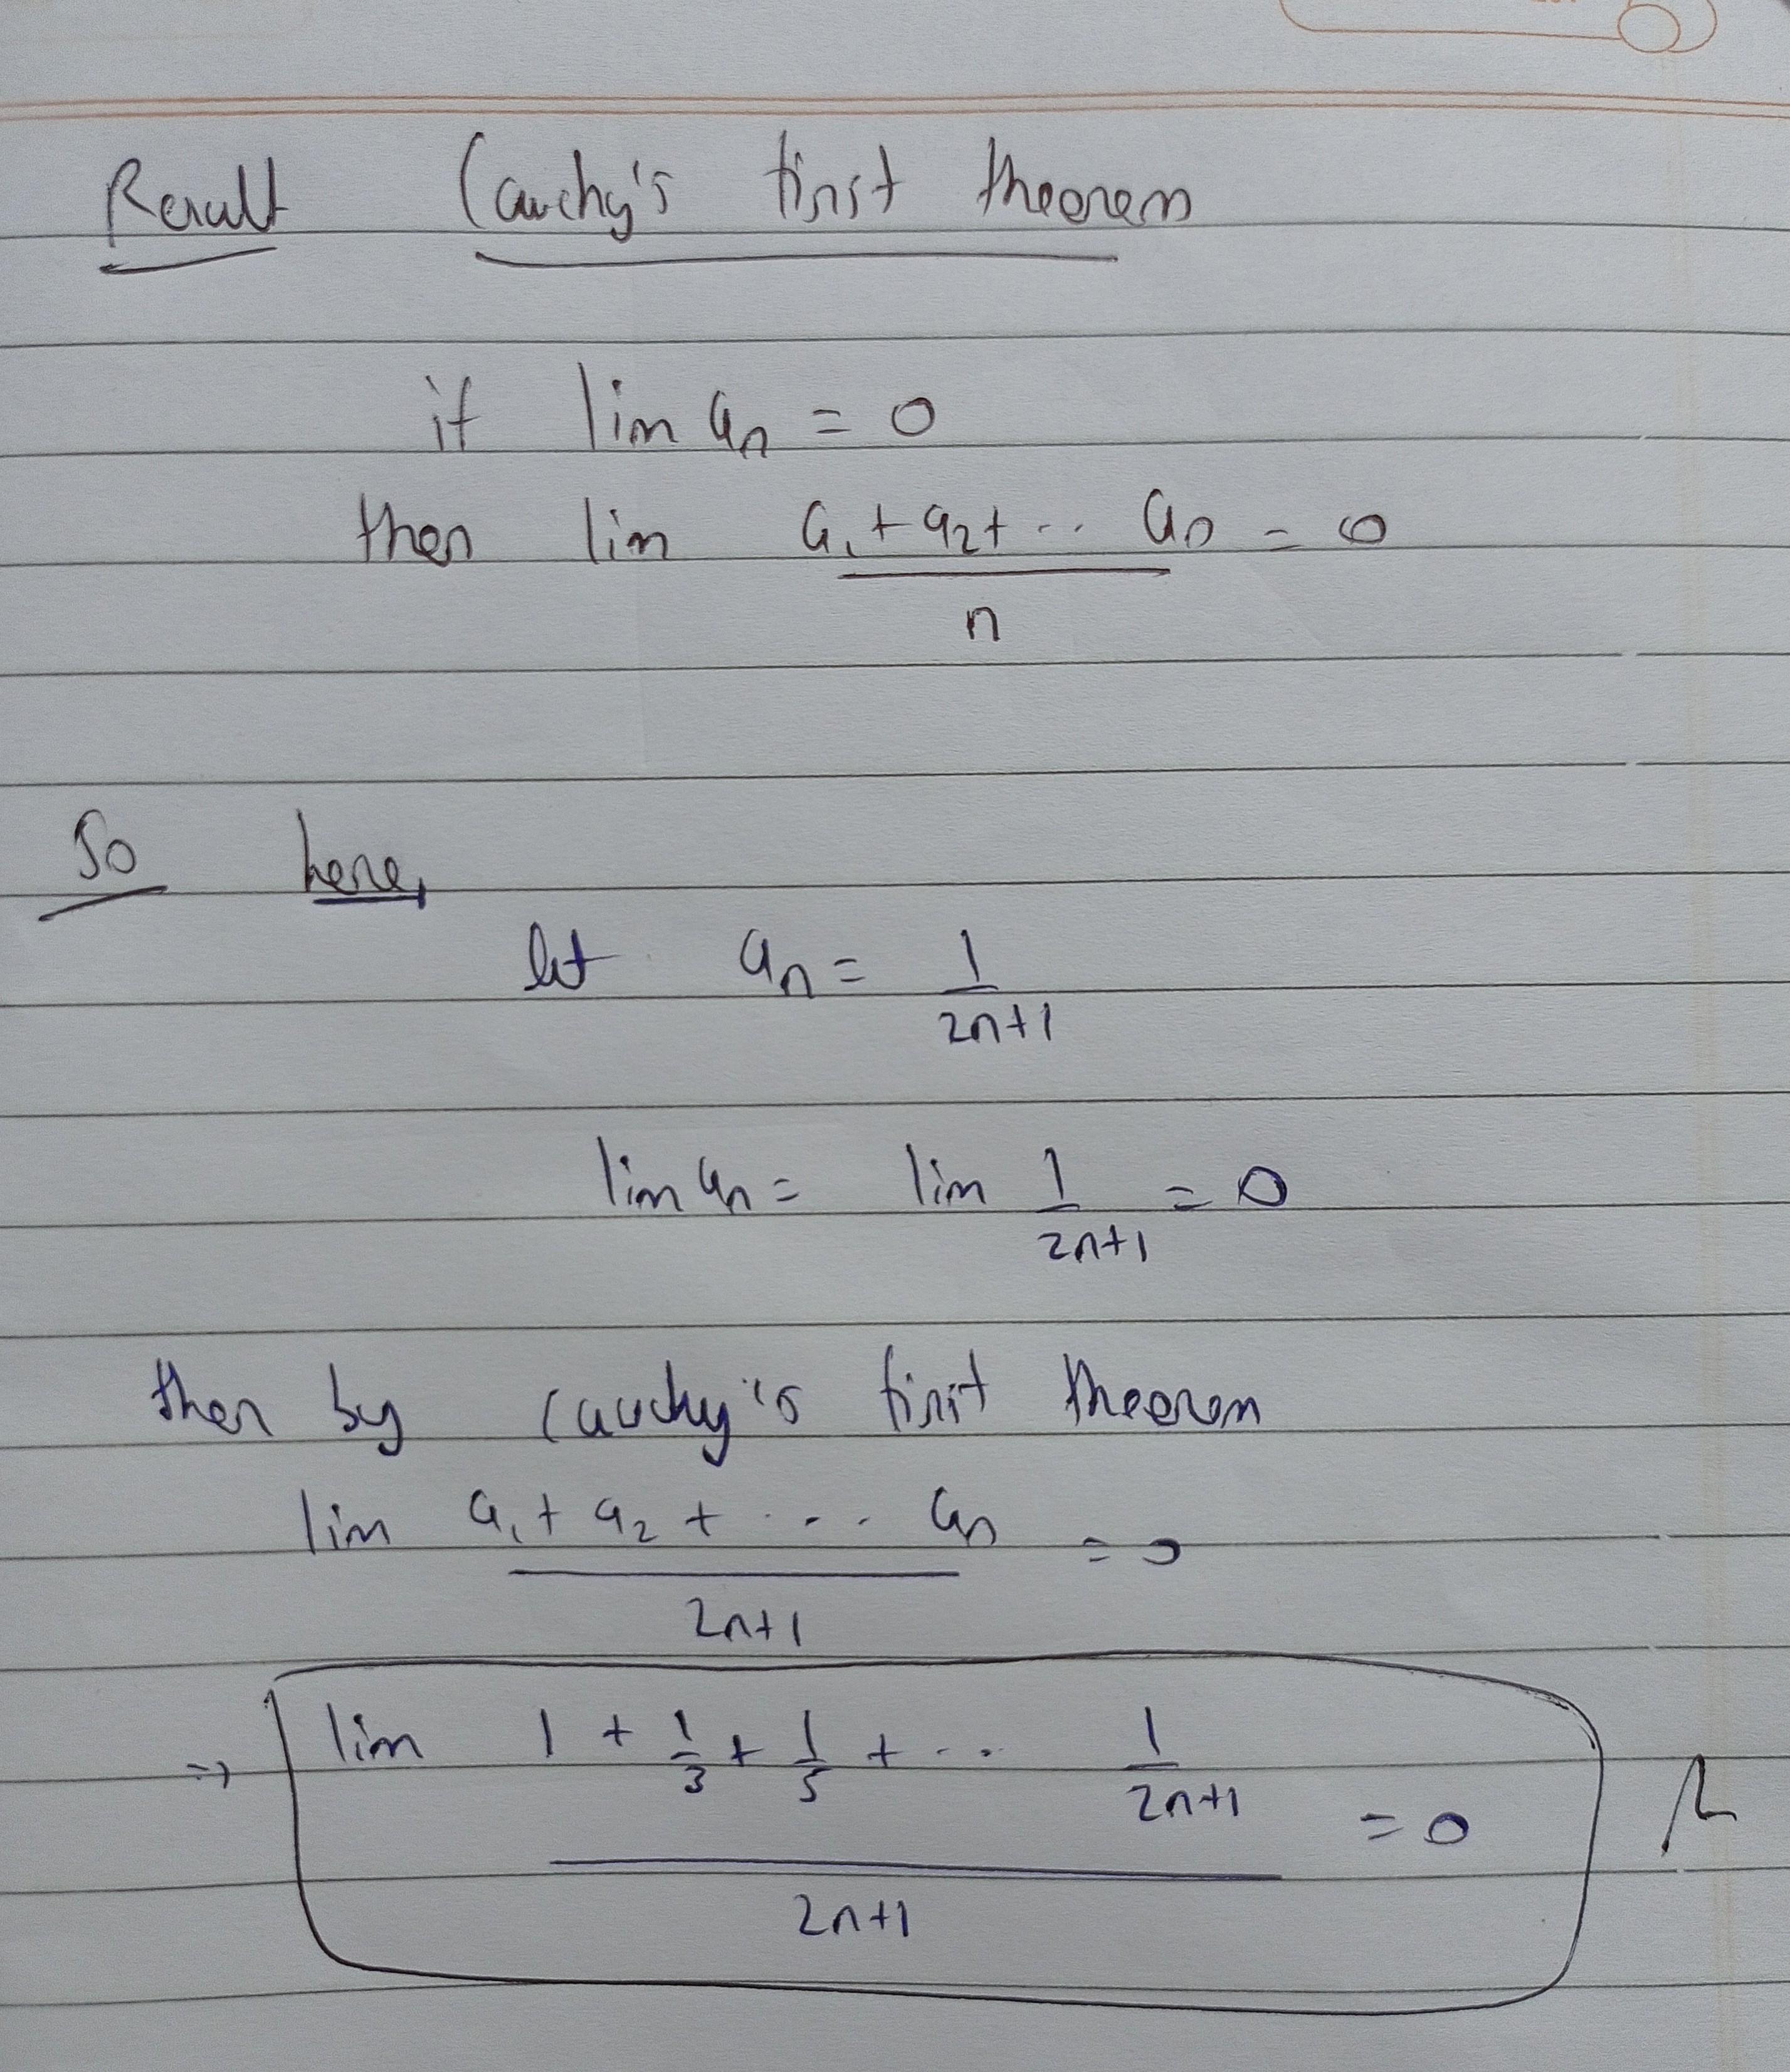 Result Cauchy's first theorem
if lim aₙ = 0
then lim (a₁ + a₂ + ... aₙ)/n = 0
So here,
let aₙ = 1/(2n+1)
lim aₙ = lim 1/(2n+1) = 0
then by Cauchy's first theorem
lim (a₁ + a₂ + ... aₙ)/(2n+1) = 0
⇒ lim (1 + 1/3 + 1/5 + ... 1/(2n+1))/(2n+1) = 0